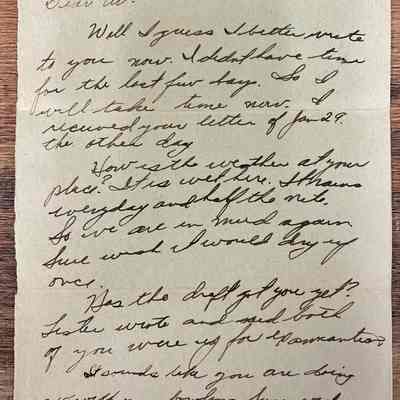 Dear
Well I guess I better write
to you now. I didnt have time
for the last few days. So I
will take time now. I
received your letter of Jan 29.
the other day
How is the weather at your
place? It is wet here. It rains
everyday and half the nite.
So we are in mud again
Sure wish it would dry up
once.
Has the draft got you yet?
Sister wrote and said both
of you were up for examantion
Sounds like you are doing